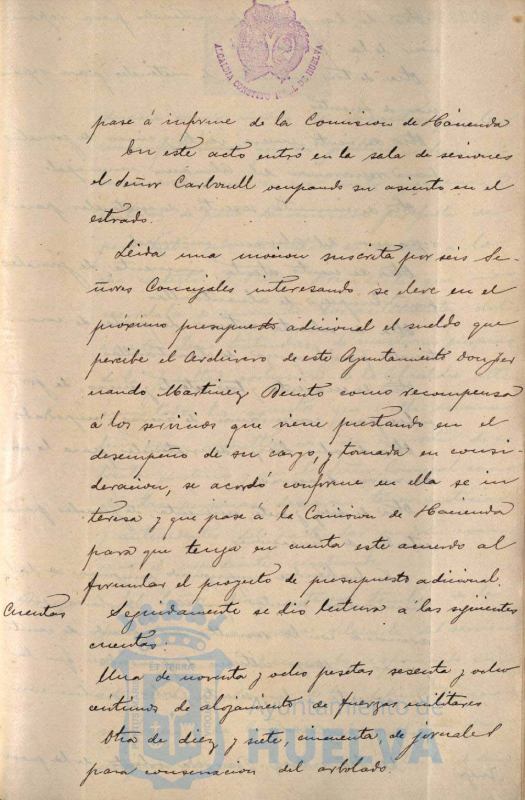 ALCALDIA CONSTITUCIONAL DE HUELVA
pase á informe de la Comision de Hacienda
En este acto entró en la sala de sesiones
el Señor Carbonell ocupando su asiento en el
estrado.
Leida una mocion suscrita por seis Se-
ñores Concejales interesando se eleve en el
próximo presupuesto adicional el sueldo que
percibe el Archivero de este Ayuntamiento Don Fer
nando Martinez Benito como recompensa
á los servicios que viene prestando en el
desempeño de su cargo, y tomada en consi-
deracion, se acordó conforme en ella se in
teresa y que pase á la Comision de Hacienda
para que tenga en cuenta este acuerdo al
formular el proyecto de presupuesto adicional.
Cuentas
Seguidamente se dió lectura á las siguientes
cuentas:
Una de noventa y ocho pesetas sesenta y ocho
céntimos de alojamiento de fuerzas militares
Otra de diez y siete, cincuenta de jornales
para conservacion del arbolado.
Ayuntamiento de
HUELVA